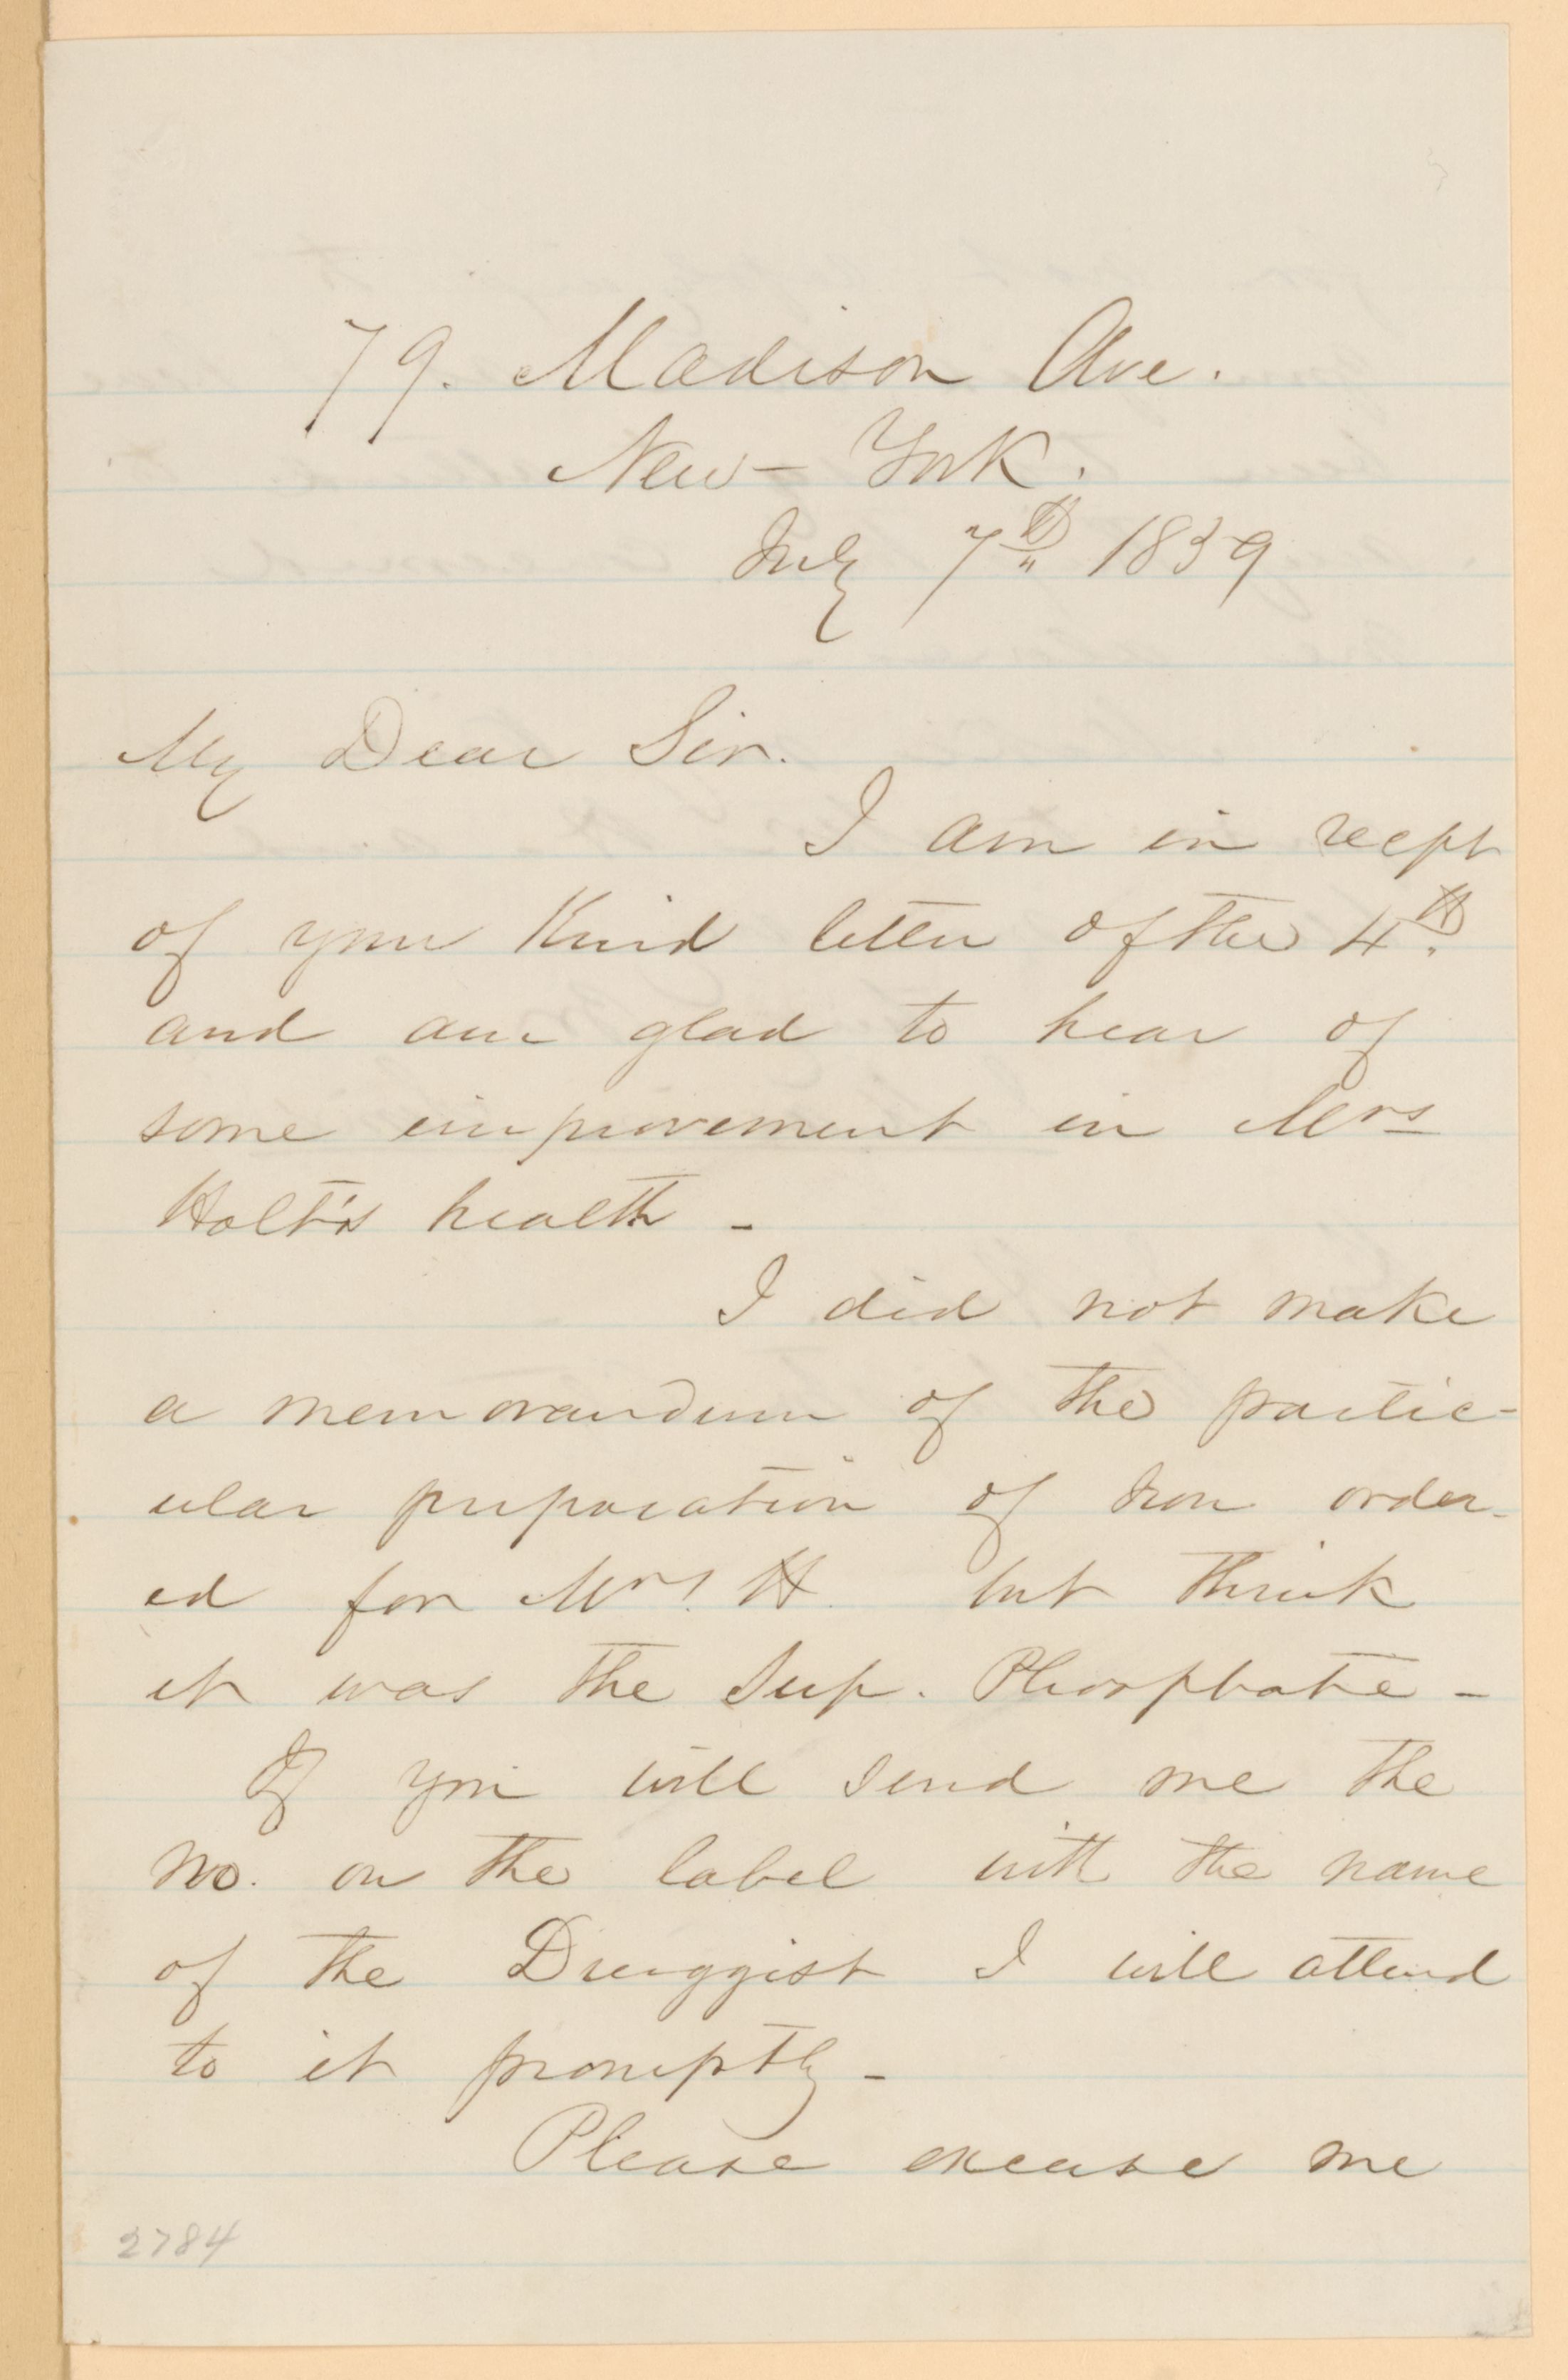 79. Madison Ave.
New-York.
July 7th 1859
My Dear Sir.
I am in recpt
of your kind letter of the 4th.
and am glad to hear of
some improvement in Mrs
Holt's health -
I did not make
a memorandum of the partic-
ular preparation of Iron order-
ed for Mrs. H. but think
it was the Sup. Phosphate -
If you will send me the
No. on the label with the name
of the Druggist I will attend
to it promptly -
Please excuse me
2784